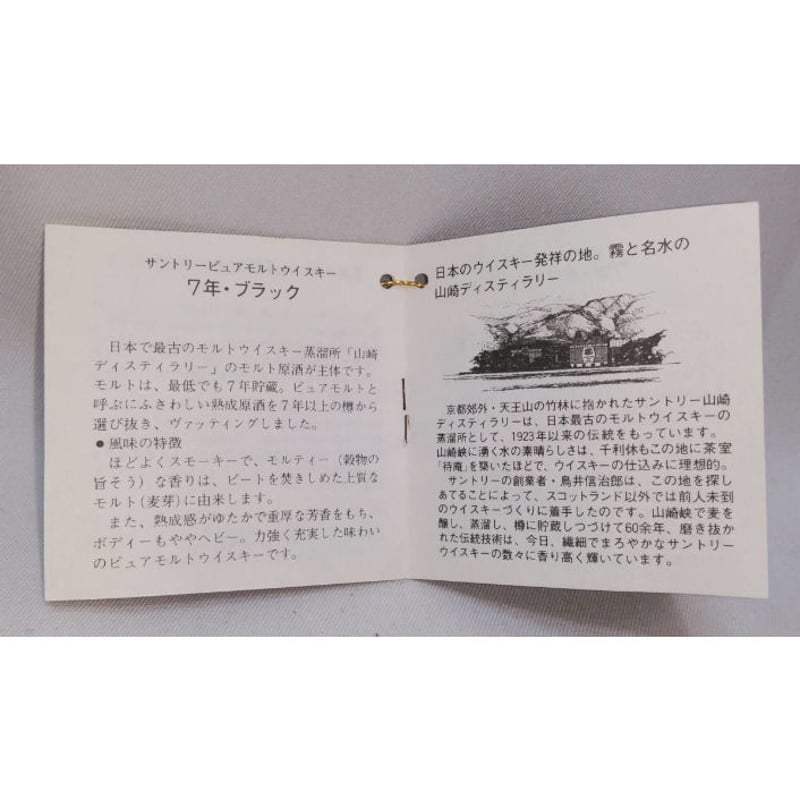 サントリーピュアモルトウイスキー
7年・ブラック
日本で最古のモルトウイスキー蒸溜所「山崎
ディスティラリー」のモルト原酒が主体です。
モルトは、最低でも7年貯蔵。ピュアモルトと
呼ぶにふさわしい熟成原酒を7年以上の樽から
選び抜き、ヴァッティングしました。
●風味の特徴
ほどよくスモーキーで、モルティー(穀物の
旨そう)な香りは、ピートを焚きしめた上質な
モルト(麦芽)に由来します。
また、熟成感がゆたかで重厚な芳香をもち、
ボディーもややヘビー。力強く充実した味わい
のピュアモルトウイスキーです。
日本のウイスキー発祥の地。霧と名水の
山崎ディスティラリー
京都郊外・天王山の竹林に抱かれたサントリー山崎
ディスティラリーは、日本最古のモルトウイスキーの
蒸溜所として、1923年以来の伝統をもっています。
山崎峡に湧く水の素晴らしさは、千利休もこの地に茶室
「待庵」を築いたほどで、ウイスキーの仕込みに理想的。
サントリーの創業者・鳥井信治郎は、この地を探し
あてることによって、スコットランド以外では前人未到
のウイスキーづくりに着手したのです。山崎峡で麦を
醸し、蒸溜し、樽に貯蔵しつづけて60余年、磨き抜か
れた伝統技術は、今日、繊細でまろやかなサントリー
ウイスキーの数々に香り高く輝いています。